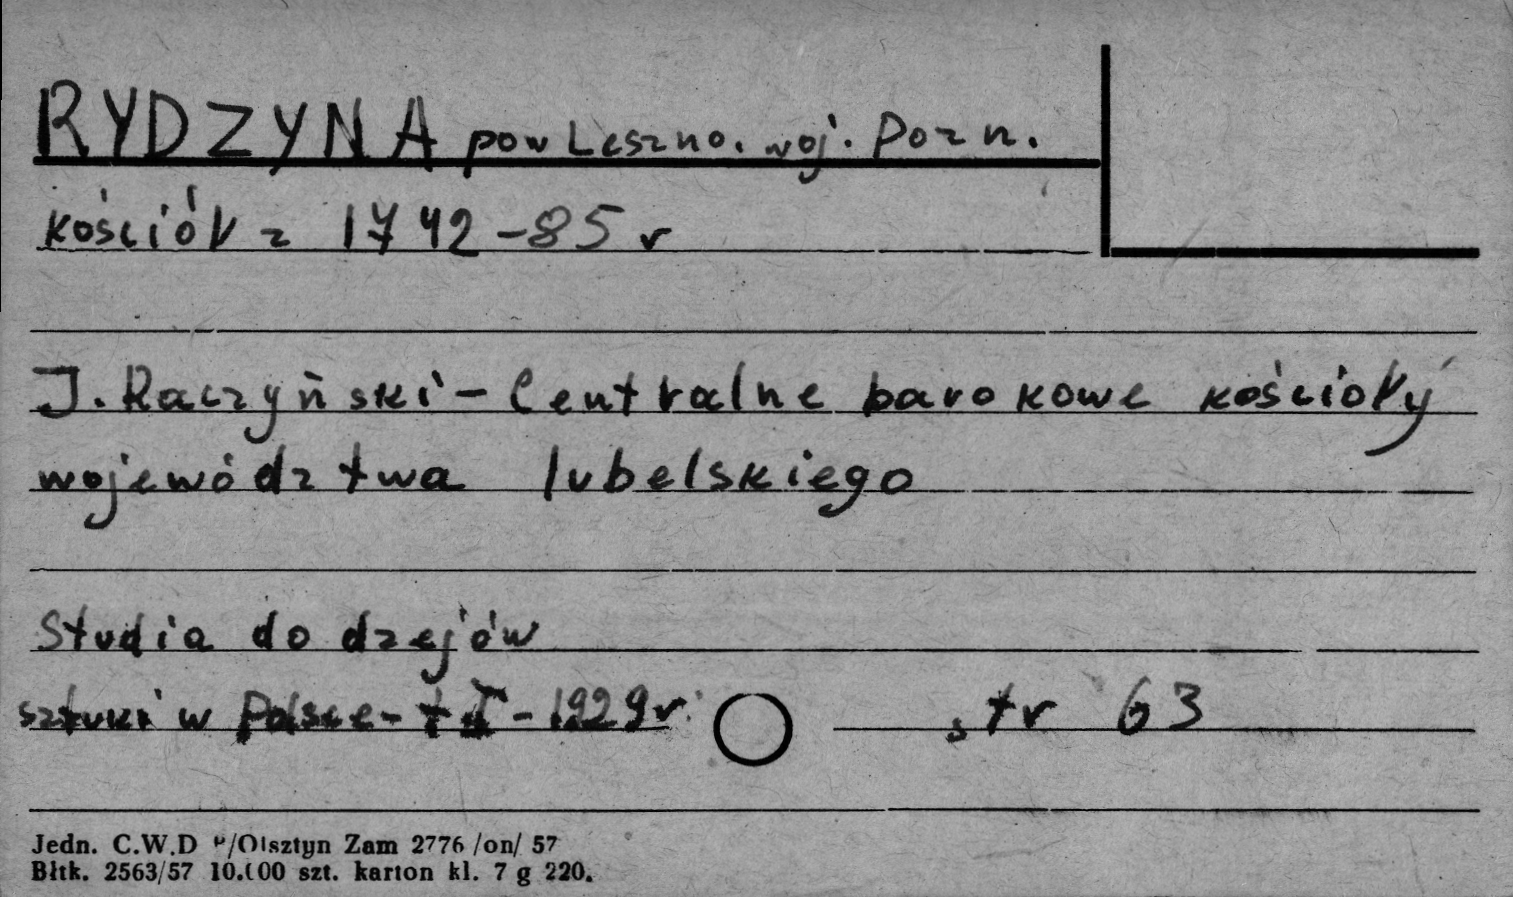 RYDZYNA pow Leszno. woj. Pozn.
kościół z 1742-85 r
J. Raczyński - Centralne barokowe kościoły
województwa lubelskiego
Studia do dzejów
sztuki w Polsce - t I - 1929 r.
str 63
Jedn. C.W.D P/Olsztyn Zam 2776 /on/ 57
Błtk. 2563/57 10.000 szt. karton kl. 7 g 220.